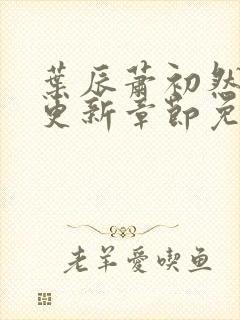 葉辰蕭初然
更新章節免
老羊愛喫鱼